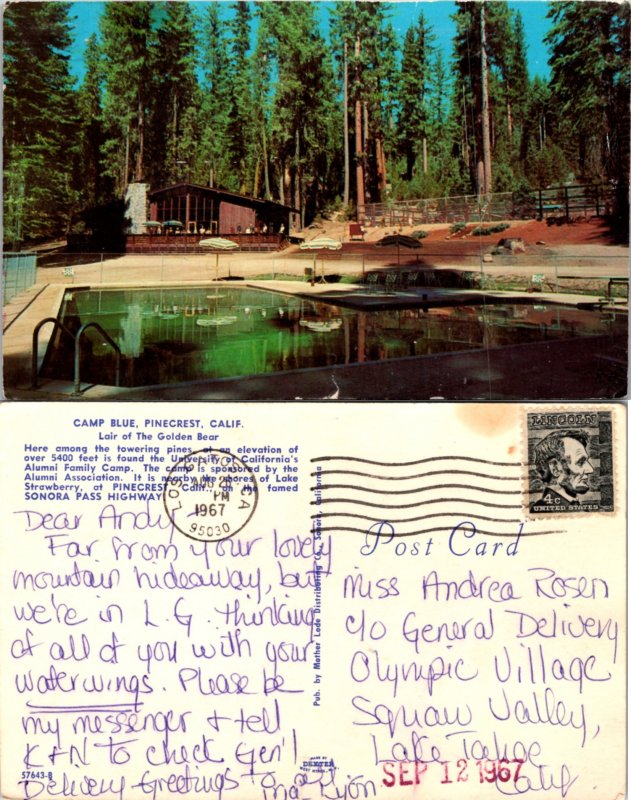 CAMP BLUE, PINECREST, CALIF.
Lair of The Golden Bear
Here among the towering pines at an elevation of
over 5400 feet is found the University of California's
Alumni Family Camp. The camp is sponsored by the
Alumni Association. It is nearby the shores of Lake
Strawberry, at PINECREST Calif., on the famed
SONORA PASS HIGHWAY
LOS GATOS, CA
AUG
PM
1967
95030
LINCOLN
4c
UNITED STATES
Dear Andy
Far from your lovely
mountain hideaway, but
we're in L.G. thinking
of all of you with your
waterwings. Please be
my messenger + tell
K+N to check Gen'l
Delivery Greetings to
57643-B
Pub. by Mather Lode Distributing Co., Sonora, California
Post Card
Miss Andrea Rosen
c/o General Delivery
Olympic Village
Squaw Valley,
Lake Tahoe
Calif
MADE BY
DEXTER
SEP 12 1967